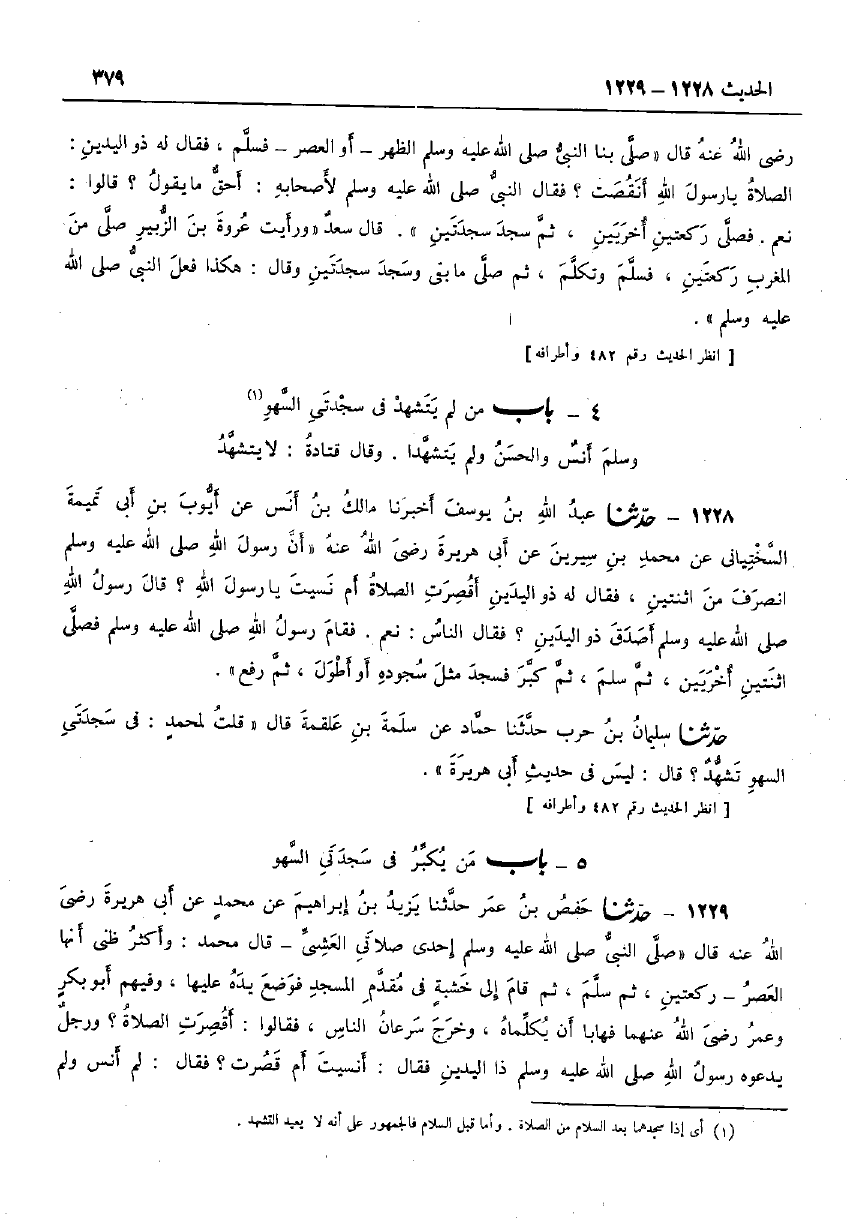 الحديث ١٢٢٨ – ١٢٢٩ ٣٧٩
رضى اللهُ عنهُ قال « صلَّى بنا النبىُّ صلى الله عليه وسلم الظهر – أو العصر – فسلَّم ، فقال له ذو اليدينِ :
الصلاةُ يا رسولَ اللهِ أَنَقُصَت ؟ فقال النبىُّ صلى الله عليه وسلم لأصحابهِ : أحقٌّ ما يقولُ ؟ قالوا :
نعم . فصلَّى رَكعتينِ أُخرَيَينِ ، ثمَّ سجدَ سجدَتَينِ » . قال سعدٌ « ورأيت عُروةَ بنَ الزُّبيرِ صلَّى منَ
المغربِ رَكعتَينِ ، فسلَّمَ وتكلَّمَ ، ثم صلَّى ما بقى وسَجدَ سجدَتَينِ وقال : هكذا فعلَ النبىُّ صلى الله
عليه وسلم » .
[ انظر الحديث رقم ٤٨٢ وأطرافه ]
٤ – باب من لم يَتَشهدْ فى سجْدتَىِ السَّهوِ (١)
وسلمَ أنسٌ والحسَنُ ولم يَتشهَّدا . وقال قتادةُ : لا يتشهَّدُ
١٢٢٨ – حدّثنا عبدُ اللهِ بنُ يوسفَ أخبرَنا مالكُ بنُ أنَس عن أيُّوبَ بنِ أبى تَميمةَ
السَّخْتِيانى عن محمدِ بنِ سِيرينَ عن أبى هريرةَ رضىَ اللهُ عنهُ « أنَّ رسولَ اللهِ صلى الله عليه وسلم
انصرَفَ منَ اثنتينِ ، فقال له ذو اليدَينِ أقُصِرَتِ الصلاةُ أم نَسيتَ يا رسولَ اللهِ ؟ قالَ رسولُ اللهِ
صلى الله عليه وسلم أصَدَقَ ذو اليدَينِ ؟ فقال الناسُ : نعم . فقامَ رسولُ اللهِ صلى الله عليه وسلم فصلَّى
اثنَتينِ أُخْرَيَين ، ثمَّ سلمَ ، ثمَّ كبَّرَ فسجدَ مثلَ سُجودهِ أو أطْوَلَ ، ثمَّ رفع » .
حدّثنا سليمانُ بنُ حرب حدَّثَنا حمَّاد عن سلَمةَ بنِ عَلقمةَ قال « قلتُ لمحمدٍ : فى سَجدَتَىِ
السهوِ تَشهُّدٌ ؟ قال : ليسَ فى حديثِ أبى هريرةَ » .
[ انظر الحديث رقم ٤٨٢ وأطرافه ]
٥ – باب مَن يُكبِّرُ فى سَجدَتَىِ السَّهو
١٢٢٩ – حدّثنا حَفصُ بنُ عمَر حدَّثنا يَزيدُ بنُ إبراهيمَ عن محمدٍ عن أبى هريرةَ رضىَ
اللهُ عنه قال « صلَّى النبىُّ صلى الله عليه وسلم إحدى صلاتَىِ العَشِىِّ – قال محمد : وأكثرُ ظنى أنها
العَصرُ – ركعتينِ ، ثم سلَّمَ ، ثم قامَ إلى خَشبةٍ فى مُقدَّمِ المسجدِ فوَضعَ يدَهُ عليها ، وفيهم أبو بكرٍ
وعمرُ رضىَ اللهُ عنهما فهابا أن يُكلِّماهُ ، وخرَجَ سَرعانُ الناسِ ، فقالوا : أقُصِرَتِ الصلاةُ ؟ ورجلٌ
يدعوه رسولُ اللهِ صلى الله عليه وسلم ذا اليدينِ فقال : أنسيتَ أم قَصُرت ؟ فقال : لم أنس ولم
(١) أى إذا سجدهما بعد السلام من الصلاة . وأما قبل السلام فالجمهور على أنه لا يعيد التشهد .